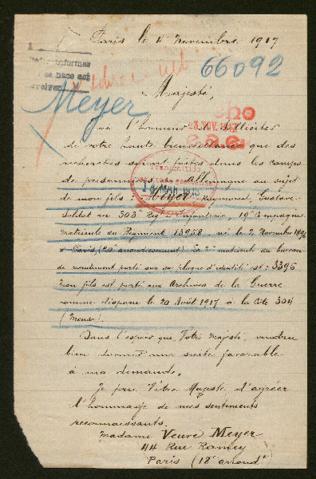 Paris le 4 Novembre 1917
66092
Meyer
Majesté,
l'honneur de solliciter
de votre haute bienveillance que des
recherches soient faites dans les camps
de prisonniers en Allemagne au sujet
de mon fils Meyer Raymond, Gustave
Soldat au 303e Reg d'infanterie, 19e Compagnie
matricule au Régiment né le 2 Novembre
Paris
mon fils est porté aux Archives de la Guerre
comme disparu le 20 Août 1917 à la Côte 304
(Meuse).
Dans l'espoir que Votre Majesté, voudra
bien donner une suite favorable
à ma demande,
Je prie Votre Majesté d'agréer
l'hommage de mes sentiments
reconnaissants.
Madame Veuve Meyer
44 Rue Ramey
Paris (18e arrondt)